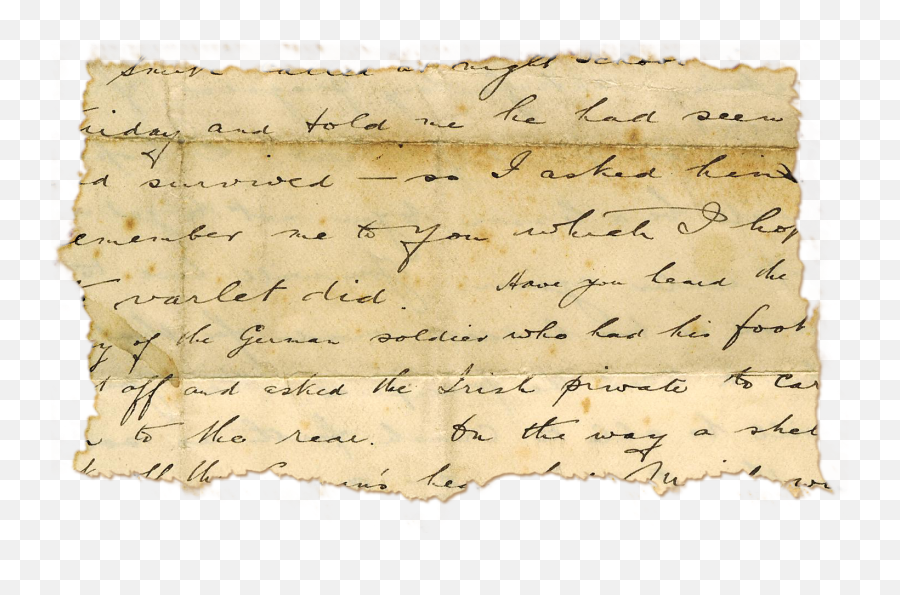 night
riday and told me he had seen
d survived — so I asked him
emember me to you which I hop
varlet did. Have you heard the
y of the German soldier who had his foot
t off and asked the Irish private to car
to the rear. On the way a shel
off the